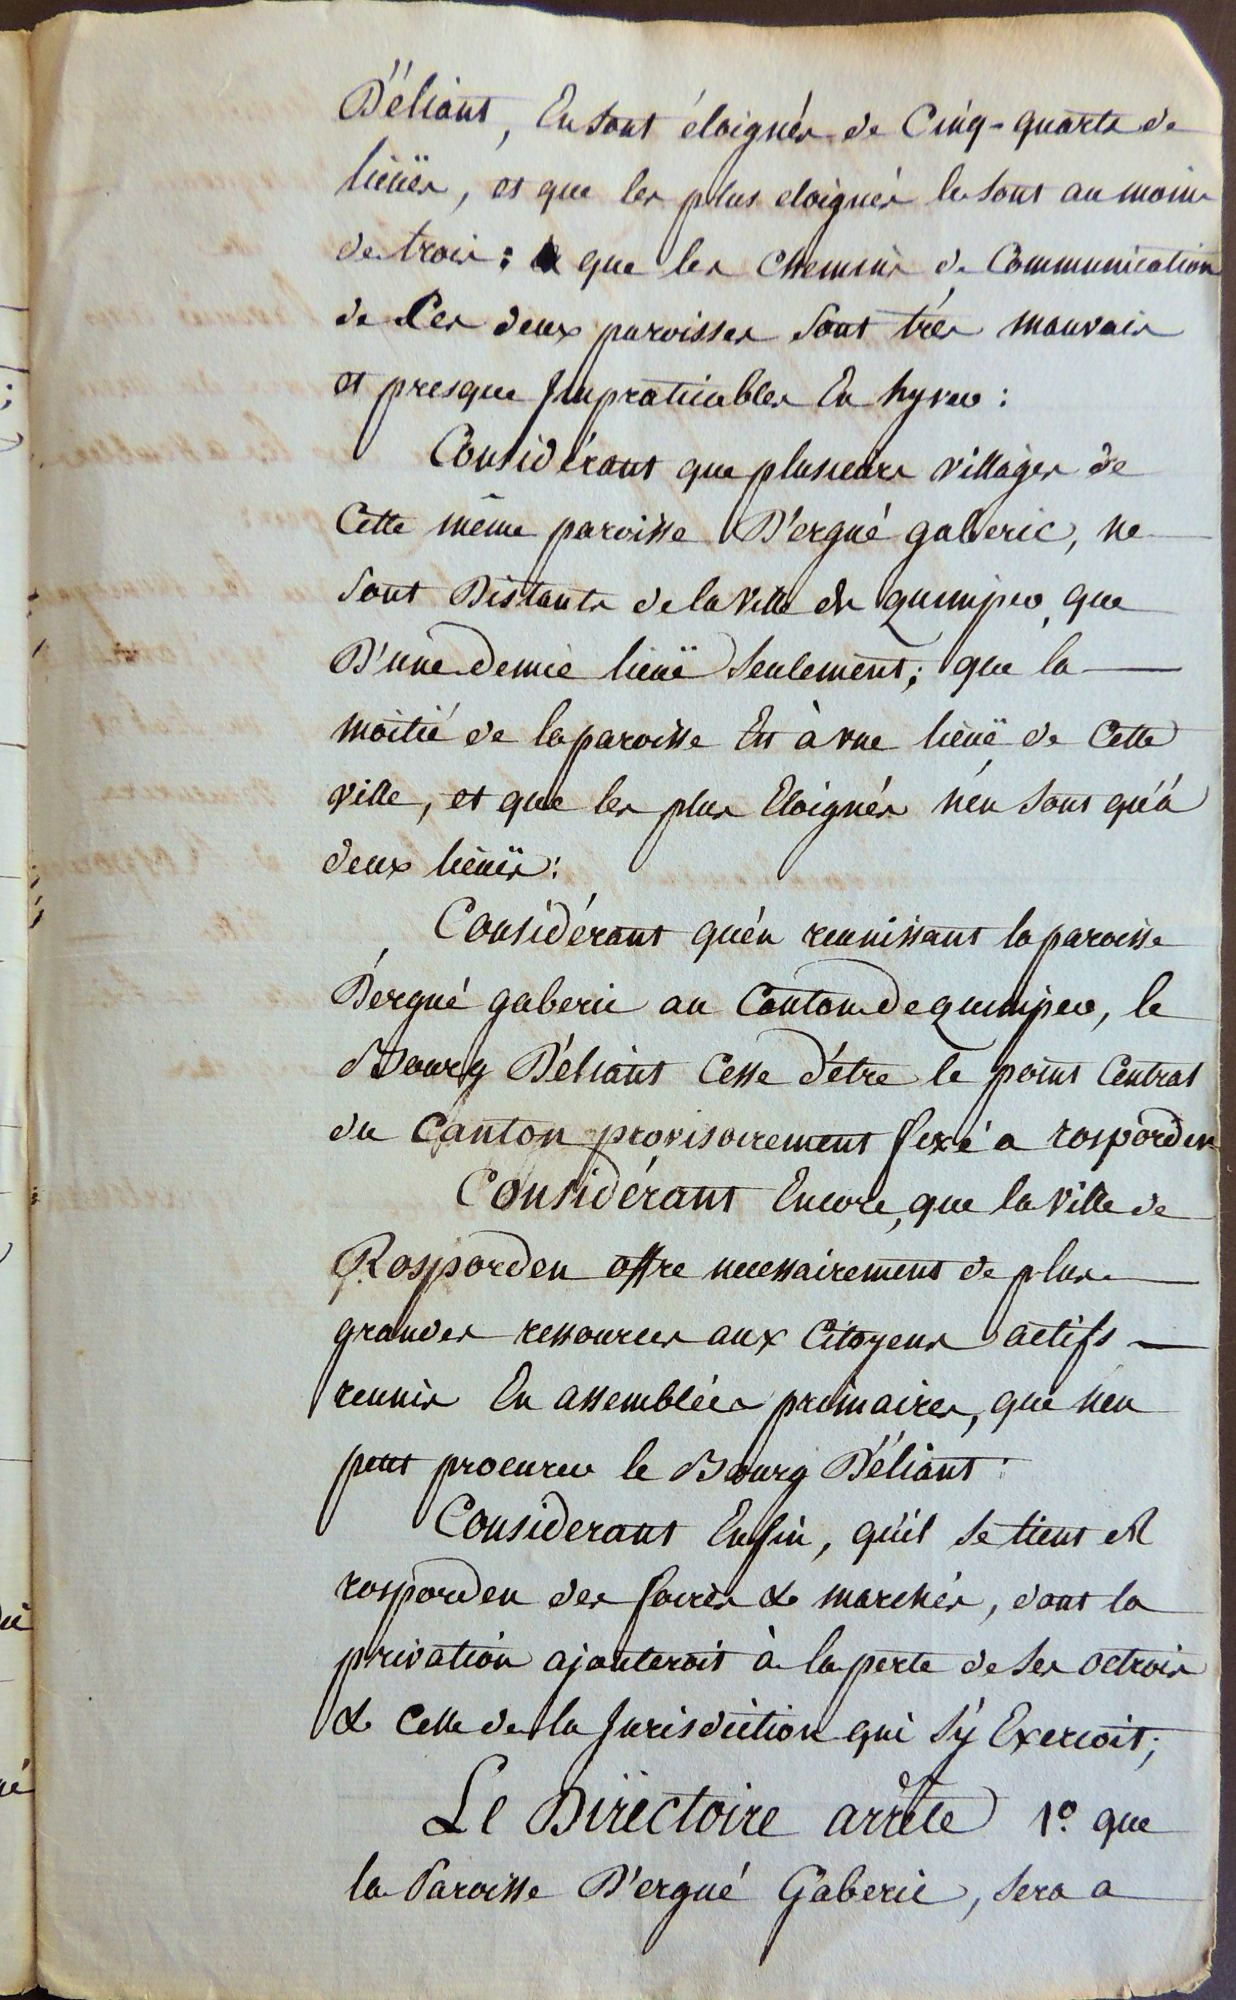 D'éliant, En sont éloignés de Cinq-quarts de
lieües, et que les plus eloignés le sont au moins
de trois : que les chemins de Communication
de Ces deux paroisses sont très mauvais
et presque Impraticables En hyver :
Considérant que plusieurs villages de
Cette même paroisse D'ergué gaberic, ne
sont Distants de la ville de quimper, que
D'une demie lieuë seulement ; que la
moitié de la paroisse Est à une lieuë de Cette
ville, et que les plus Eloignés n'én sont qu'á
deux lieües :
Considérant qu'én reunissant la paroisse
D'ergué gaberic au Canton de quimper, le
Bourg D'éliant Cesse d'étre le point Central
du Canton provisoirement fixé a rosporden
Considérant Encore, que la ville de
Rosporden offre necessairement de plus
grandes ressources aux Citoyens actifs
reunis En assemblées primaires, que n'en
peut procurer le Bourg D'éliant :
Considerant Enfin, qu'il se tient à
rosporden des foires & marchés, dont la
privation ajouteroit à la perte de ses octrois
& Celle de la Jurisdiction qui s'y Exercoit ;
Le Directoire arrête 1.º que
la Paroisse D'ergué Gaberic, sera a